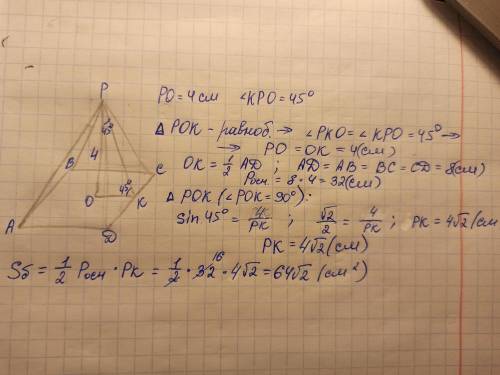 P
45°
4
B
C
O
45°
K
A
D
PO = 4 см ∠KPO = 45°
△ POK - равноб. → ∠PKO = ∠KPO = 45° →
→ PO = OK = 4(см)
OK = 1/2 AD ; AD = AB = BC = CD = 8(см)
Pосн. = 8 · 4 = 32(см)
△ POK (∠POK = 90°):
sin 45° = 4/PK ; √2/2 = 4/PK ; PK = 4√2 (см
PK = 4√2 (см)
Sб = 1/2 Pосн · PK = 1/2 · 32 16 · 4√2 = 64√2 (см²)